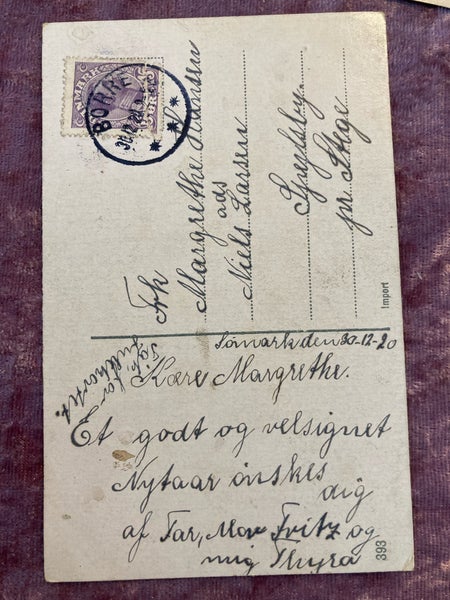 DANMARK
BORRE
30.12.20
Frk
Margrethe Hansen
ads
Niels Larsen
Spejlsby
pr Stege
Import
Sömark den 30-12-20
Kære Margrethe.
Et godt og velsignet
Nytaar önskes
dig
af Far, Mor Fritz og
mig Thyra
Tak for
393